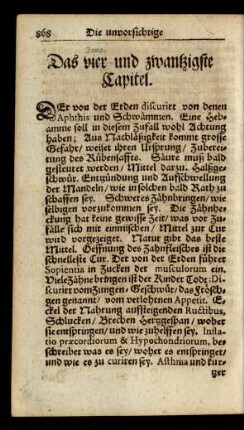 868 Die unvorsichtige
Das vier- und zwantzigste
Capitel.
DEr von der Erden discurirt von denen
Aphthis und Schwämmen. Eine Heb-
amme soll in diesem Zufall wohl Achtung
haben; Aus Nachläßigkeit komme grosse
Gefahr/ weiset ihren Ursprung/ Zuberei-
tung des Rübensaffts. Säure muß bald
gesteuret werden/ Mittel darzu. Halßge-
schwür. Entzündung und Aufschwellung
der Mandeln/ wie in solchen bald Rath zu
schaffen sey. Schweres Zähnbringen/ wie
selbigen vorzukommen sey. Die Zähnhe-
ckung hat keine gewisse Zeit/ was vor Zu-
fälle sich mit einmischen/ Mittel zur Cur
wird vorgezeiget. Natur gibt das beste
Mittel. Oeffnung des Zahnfleisches ist die
schnelleste Cur. Der von der Erden führet
Sopientia in Zucken der musculorum ein.
Viele Zähne bringen ist der Kinder Tod: Di-
scurirt vom Zungen-Geschwür/ das Frösch-
gen genannt/ vom verlohrnen Appetit. E-
ckel der Nahrung auffsteigenden Ructibus,
Schlucken/ Brechen Hertzgespan/ woher
sie entspringen/ und wie zu helffen sey. Infla-
tio præcordiorum & Hypochondriorum, be-
schreibet was es sey/ woher es entspringet/
und wie es zu curiren sey. Asthma und kur-
tzer